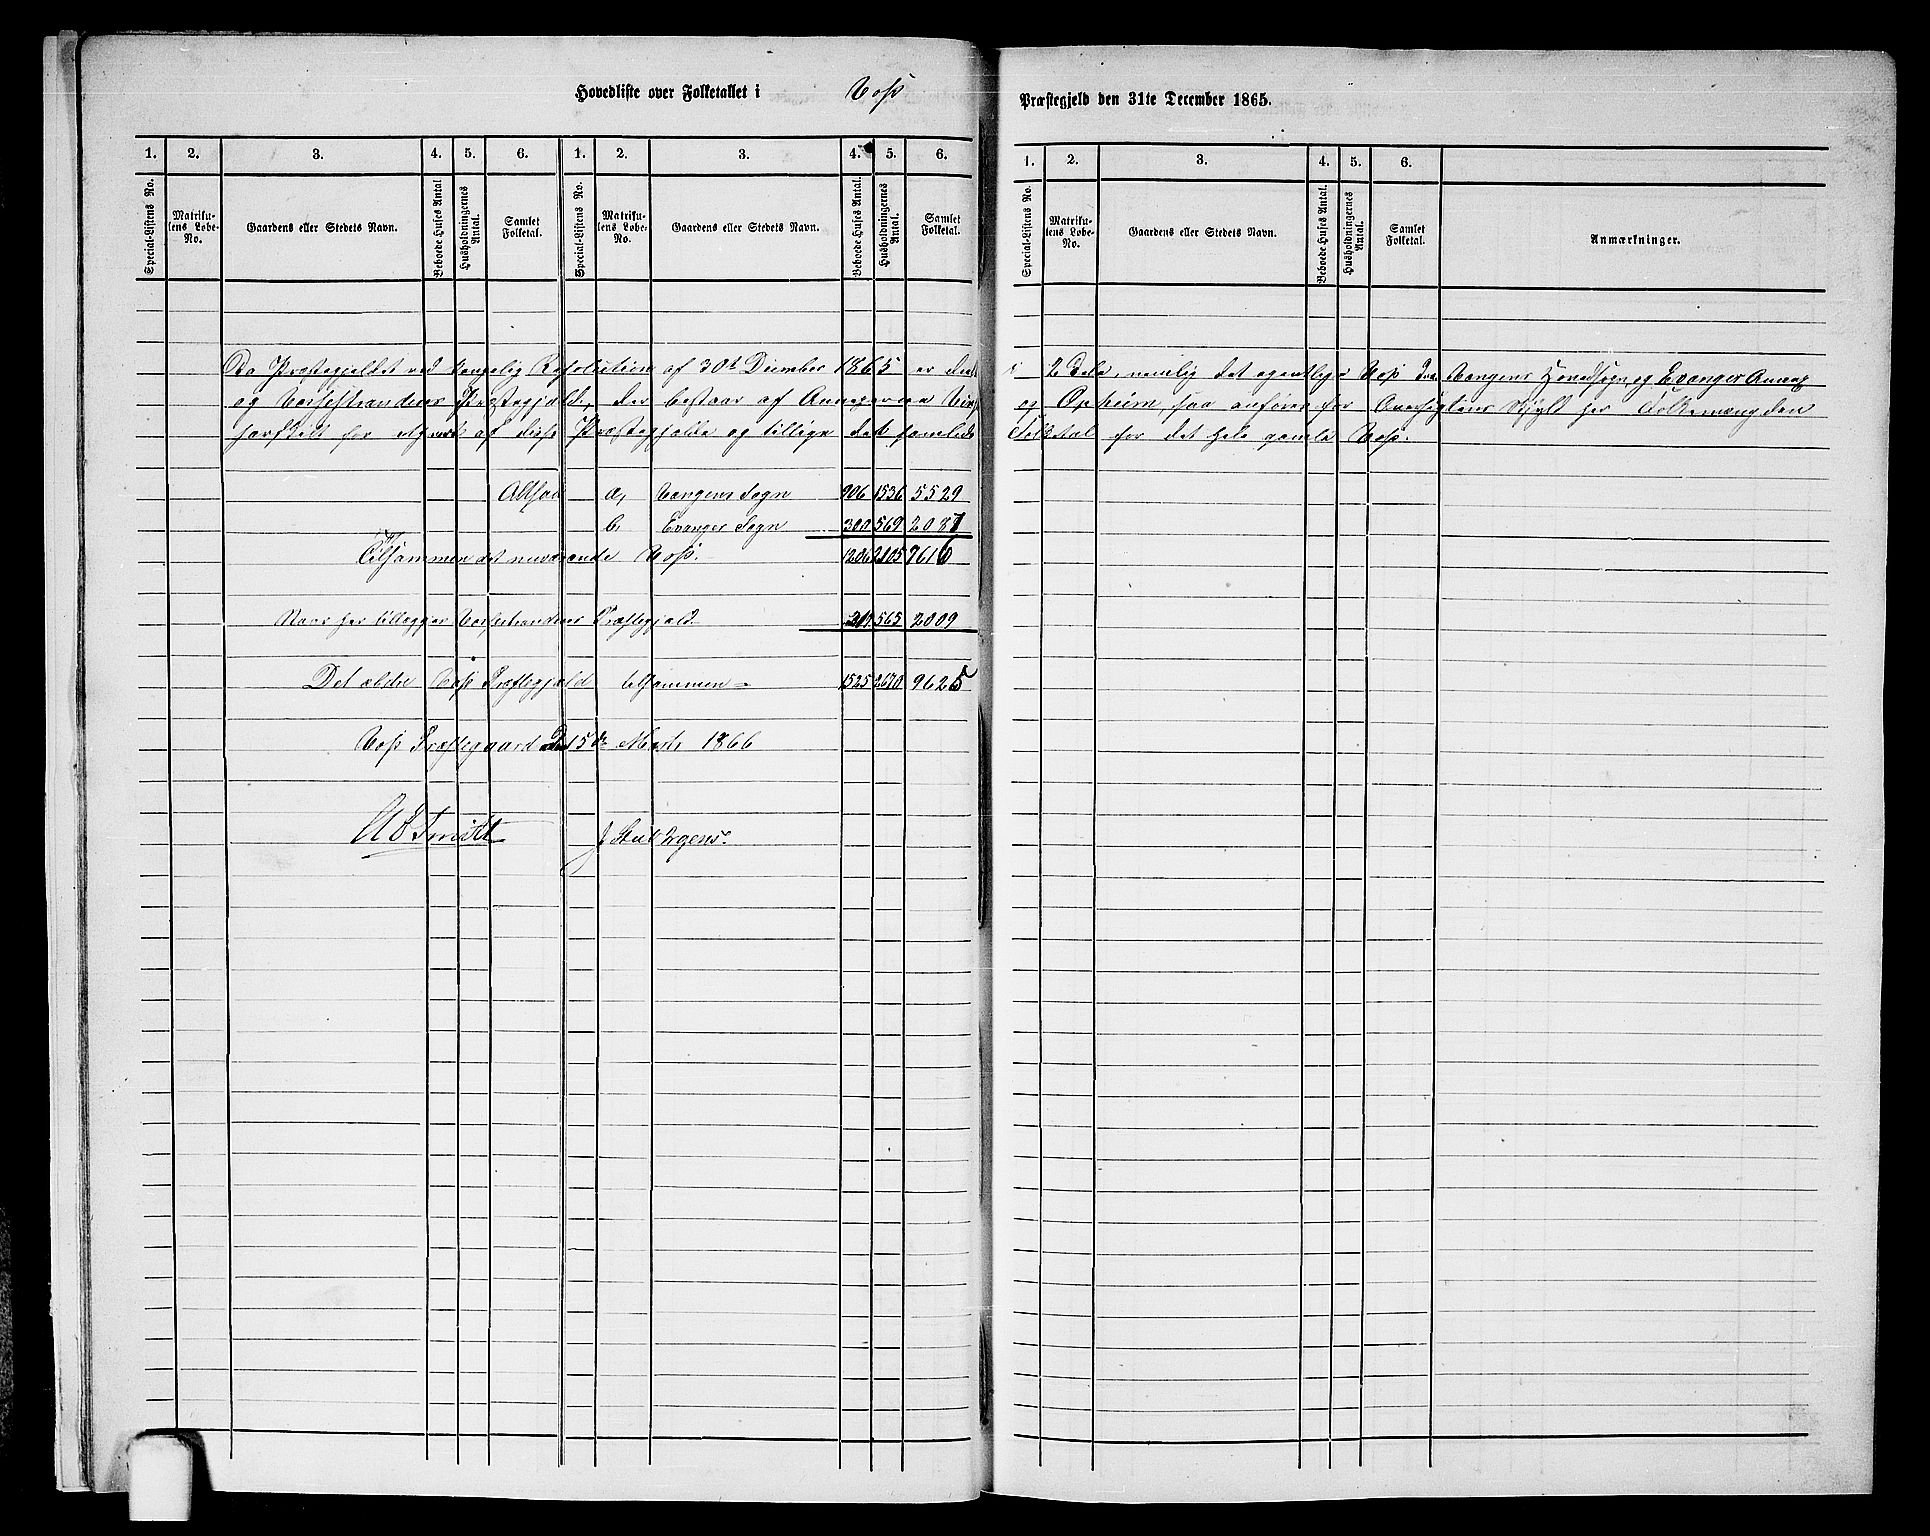 Hovedliste over Folketallet i Voss Præstegjeld den 31te December 1865.
1. 2. 3. 4. 5. 6. 1. 2. 3. 4. 5. 6. 1. 2. 3. 4. 5. 6.
Special-Listens No. Matrikulens Løbe-No. Gaardens eller Stedets Navn. Beboede Huses Antal Husholdningernes Antal. Samlet Folketal. Special-Listens No. Matrikulens Løbe-No. Gaardens eller Stedets Navn. Beboede Huses Antal. Husholdningernes Antal. Samlet Folketal. Special-Listens No. Matrikulens Løbe-No. Gaardens eller Stedets Navn. Beboede Huses Antal. Husholdningernes Antal. Samlet Folketal. Anmærkninger.
Da Præstegjeldet ved kongelig Resolution af 30te December 1865 er deelt i 2 Dele, nemlig det egentlige Voss Vangens Hovedsogn og Evanger Annex
og Vossestrandens Præstegjeld, der bestaar af og Opheim, saa anføres for Oversigtens Skyld her Folkemængden
særskilt for af disse Præstegjelde og tillige det samlede Folketal for det hele gamle Voss.
Altsaa a, Vangens Sogn 906 1536 5529
b, Evanger Sogn 300 569 2087
Tilsammen det nuværende Voss. 1206 2105 7616
Naar her tillægges Vossestrandens Præstegjeld 565 2009
Det ældre Voss Præstegjeld tilsammen = 1525 2670 9625
Voss Præstegaard den 15de Marts 1866